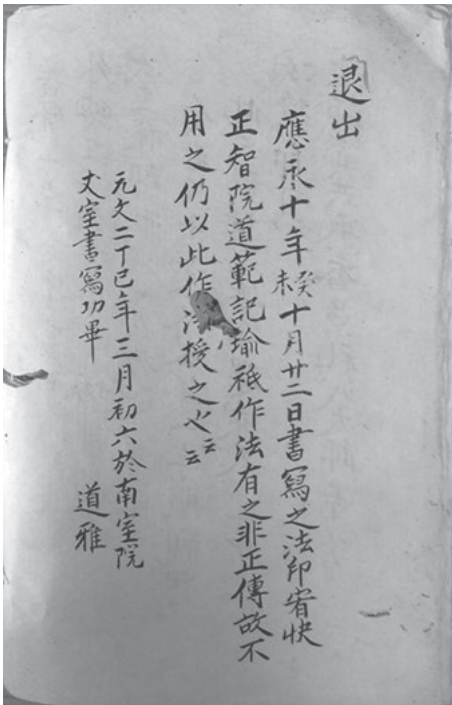 退出
應永十年癸未十月廿二日書寫之法印宥快
正智院道範記瑜祇作法有之非正傳故不
用之仍以此作法授之也云云
元文二丁巳年三月初六於南室院
丈室書寫功畢 道雅